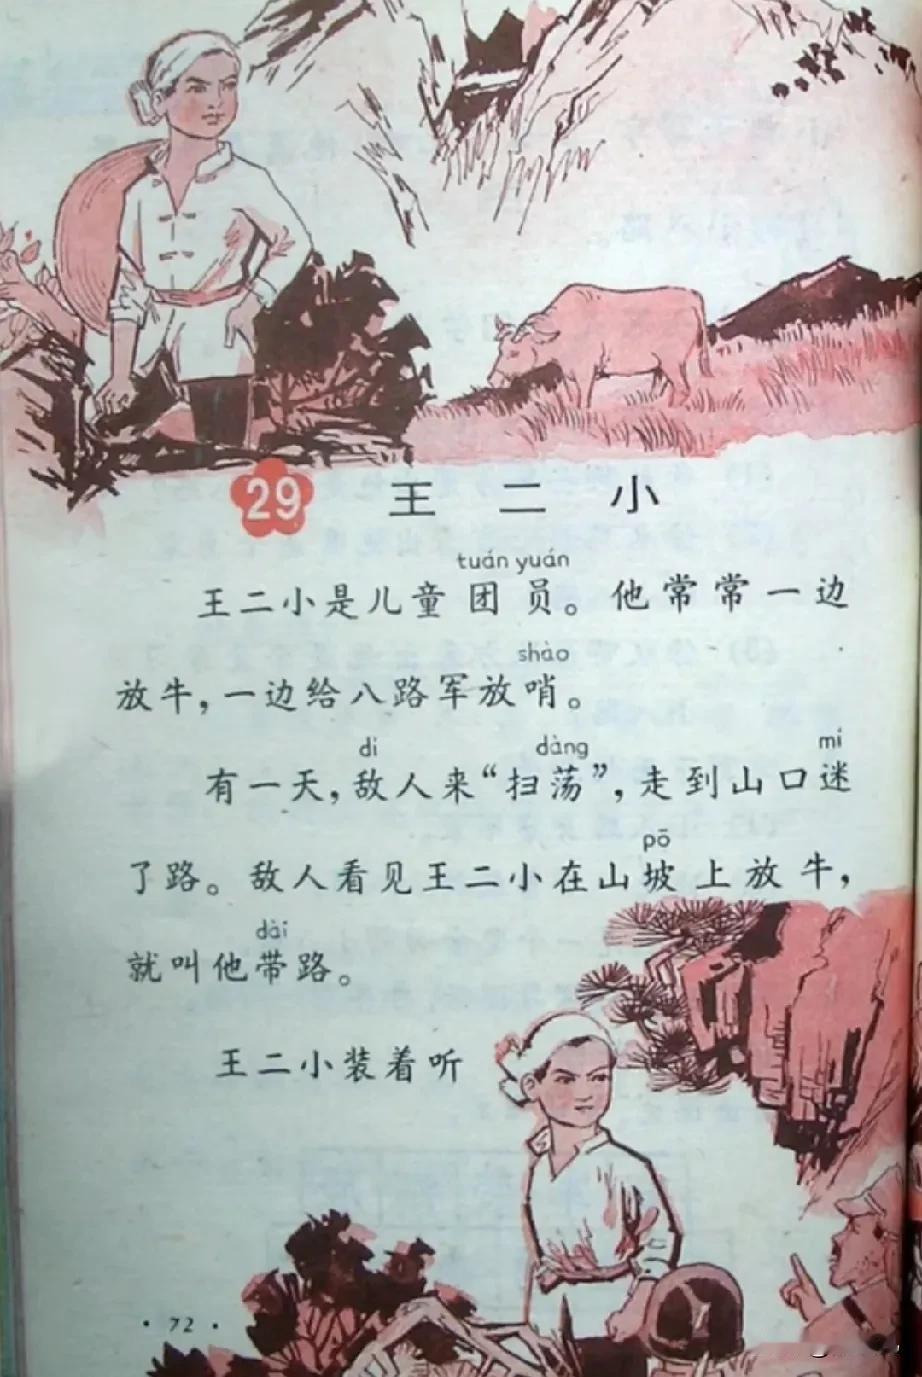 29 王二小
tuán yuán
王二小是儿童团员。他常常一边
shào
放牛，一边给八路军放哨。
dí dàng mí
有一天，敌人来“扫荡”，走到山口迷
pō
了路。敌人看见王二小在山坡上放牛，
dài
就叫他带路。
王二小装着听
·72·